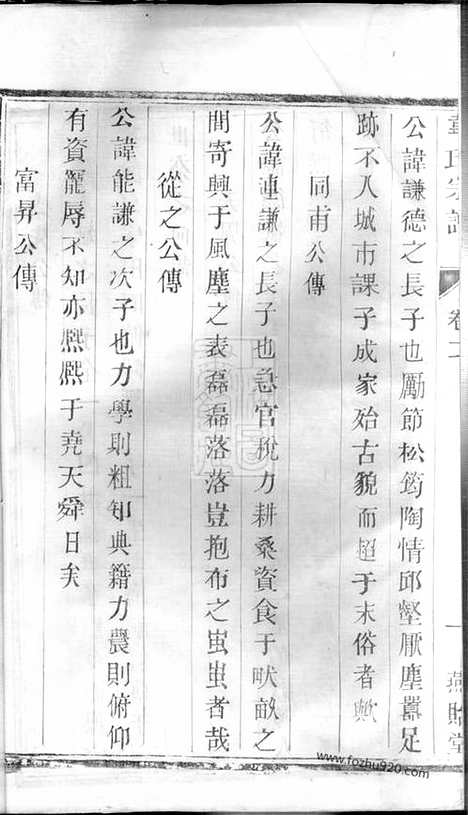 氏宗譜 卷二 燕貽堂
公諱謙德之長子也勵節松筠陶情邱壑厭塵囂足
跡不入城市課子成家始古貌而超于末俗者歟
同甫公傳
公諱連謙之長子也急官稅力耕桑資食于畎畝之
間寄興于風塵之表磊磊落落豈抱布之蚩蚩者哉
從之公傳
公諱能謙之次子也力學則粗知典籍力農則俯仰
有資寵辱不知亦熈熈于堯天舜日矣
富昇公傳
www.fozhu920.com